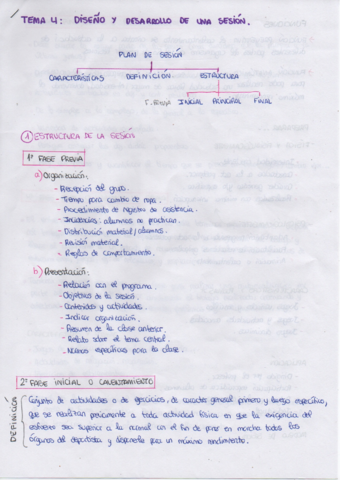 TEMA 4: DISEÑO Y DESARROLLO DE UNA SESIÓN.
PLAN DE SESIÓN
CARACTERÍSTICAS DEFINICIÓN ESTRUCTURA
INICIAL PRINCIPAL FINAL
① ESTRUCTURA DE LA SESIÓN
1º FASE PREVIA
a) Organización:
- Recepción del grupo.
- Tiempo para cambio de ropa.
- Procedimiento de registro de asistencia.
- Incidencias: alumnos no practican.
- Distribución material/alumnos.
- Revisión material.
- Reglas de comportamiento.
b) Presentación:
- Relación con el programa.
- Objetivos de la sesión.
- Contenidos y actividades.
- Indicar organización.
- Resumen de la clase anterior.
- Relato sobre el tema central.
- Normas específicas para la clase.
2º FASE INICIAL O CALENTAMIENTO
DEFINICIÓN
Conjunto de actividades o de ejercicios, de carácter general primero y luego específico,
que se realizan previamente a toda actividad física en que la exigencia del
esfuerzo sea superior a la normal con el fin de poner en marcha todos los
órganos del deportista y disponerle para un máximo rendimiento.